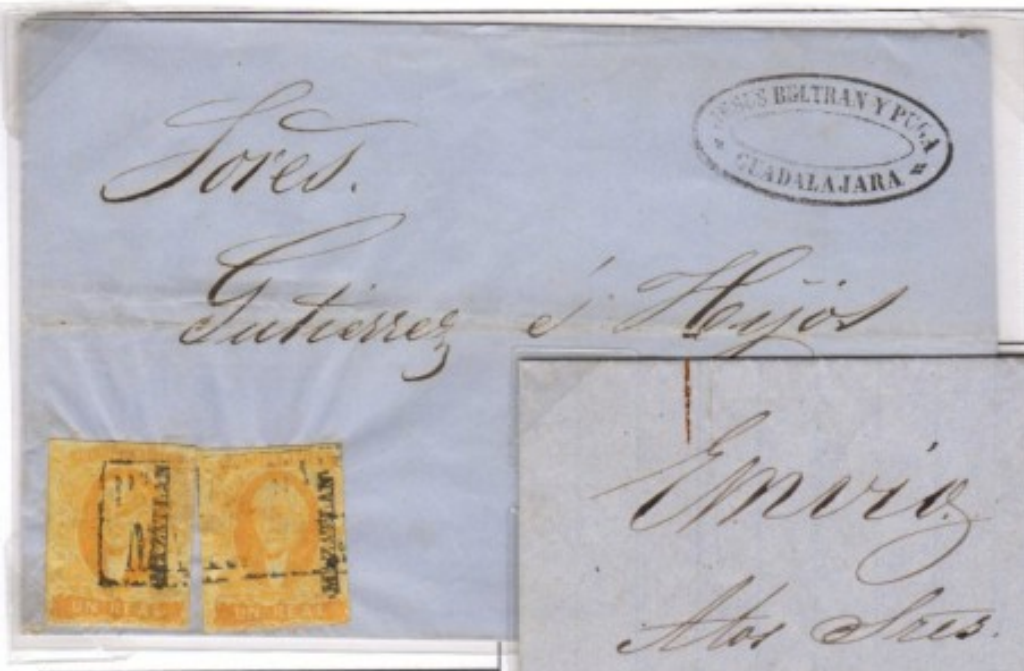 JESUS BELTRAN Y PUGA
GUADALAJARA
Sores.
Gutierrez é Hijos
MAZATLAN
MAZATLAN
UN REAL
UN REAL
Atos Sres.